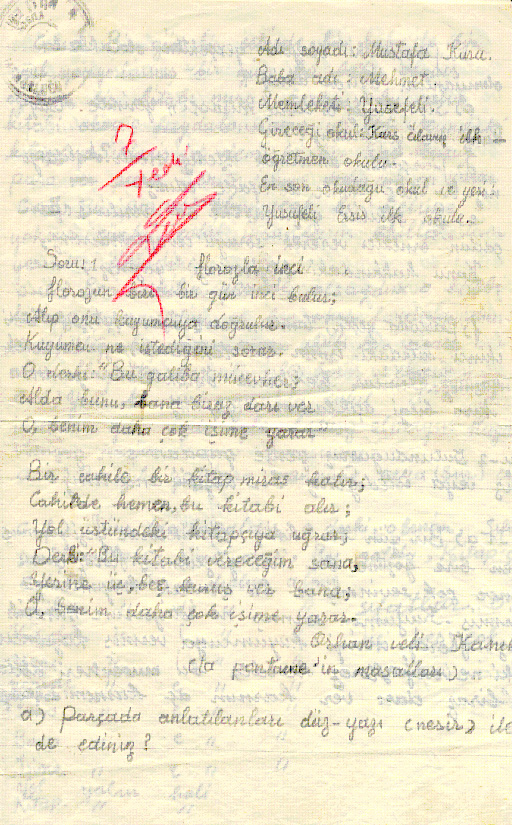 Adı soyadı: Mustafa Kuru.
Baba adı: Mehmet.
Memleketi: Yusufeli.
Gireceği okul: Kars ilk
öğretmen okulu.
En son okuduğu okul ve yeri:
Yusufeli Ersis ilk okulu.
7
Yedi
Soru: 1 Horozla inci
Horozun biri bir gün inci bulur;
Alıp onu kuyumcuya doğrulur.
Kuyumcu ne istediğini sorar.
O derki: "Bu galiba mücevher;
Alda bunu, bana biraz darı ver
O, benim daha çok işime yarar"
Bir cahile bir kitap miras kalır;
Cahilde hemen, bu kitabi alır;
Yol üstündeki kitapçıya uğrar;
Derki: "Bu kitabi vereceğim sana,
Yerine üç, beş kuruş ver bana;
O, benim daha çok işime yarar.
Orhan veli Kanık
(la pontaine'in masalları)
a) Parçada anlatılanları düz-yazı (nesir) ile
de ediniz?